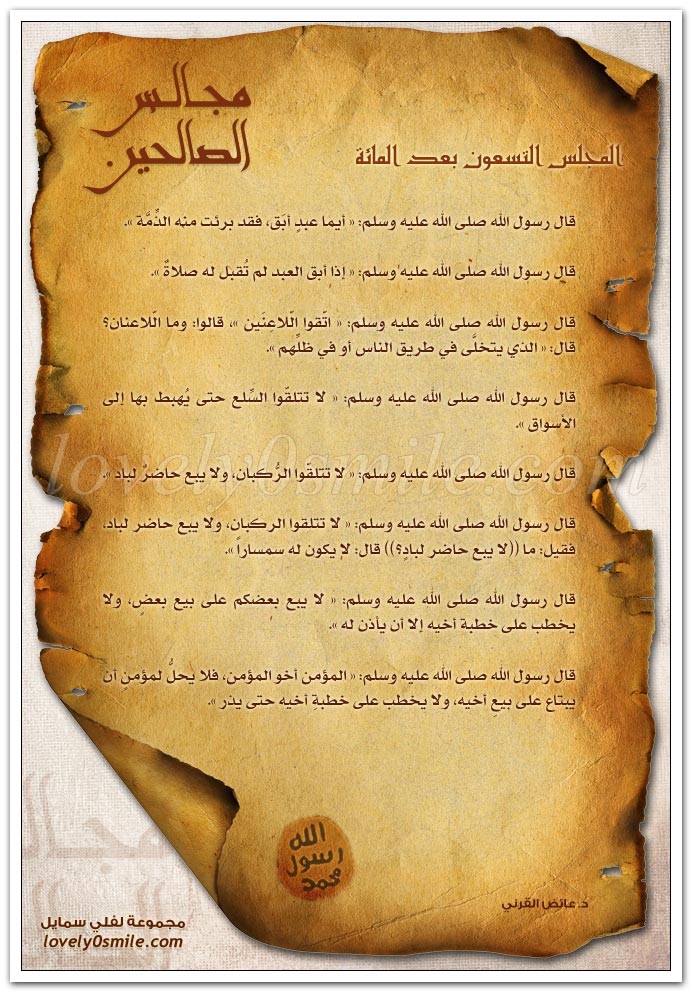 مجالس
الصالحين
المجلس التسعون بعد المائة
قال رسول الله صلى الله عليه وسلم: « أيما عبدٍ أبَق، فقد برئت منه الذِّمَّة ».
قال رسول الله صلى الله عليه وسلم: « إذا أبق العبد لم تُقبل له صلاةٌ ».
قال رسول الله صلى الله عليه وسلم: « اتّقوا اللّاعِنَين »، قالوا: وما اللّاعنان؟
قال: « الذي يتخلَّى في طريق الناس أو في ظلِّهم ».
قال رسول الله صلى الله عليه وسلم: « لا تتلقّوا السِّلع حتى يُهبط بها إلى
الأسواق ».
قال رسول الله صلى الله عليه وسلم: « لا تتلقَّوا الرُّكبان، ولا يبع حاضرٌ لباد ».
قال رسول الله صلى الله عليه وسلم: « لا تتلقوا الركبان، ولا يبع حاضر لباد،
فقيل: ما ((لا يبع حاضر لبادٍ؟)) قال: لا يكون له سمساراً ».
قال رسول الله صلى الله عليه وسلم: « لا يبع بعضكم على بيع بعضٍ، ولا
يخطب على خطبة أخيه إلا أن يأذن له ».
قال رسول الله صلى الله عليه وسلم: « المؤمن أخو المؤمن، فلا يحلُّ لمؤمنٍ أن
يبتاع على بيعِ أخيه، ولا يخطب على خطبةِ أخيه حتى يذر ».
lovely0smile.com
الله
رسول
محمد
د. عائض القرني
مجموعة لفلي سمايل
lovely0smile.com